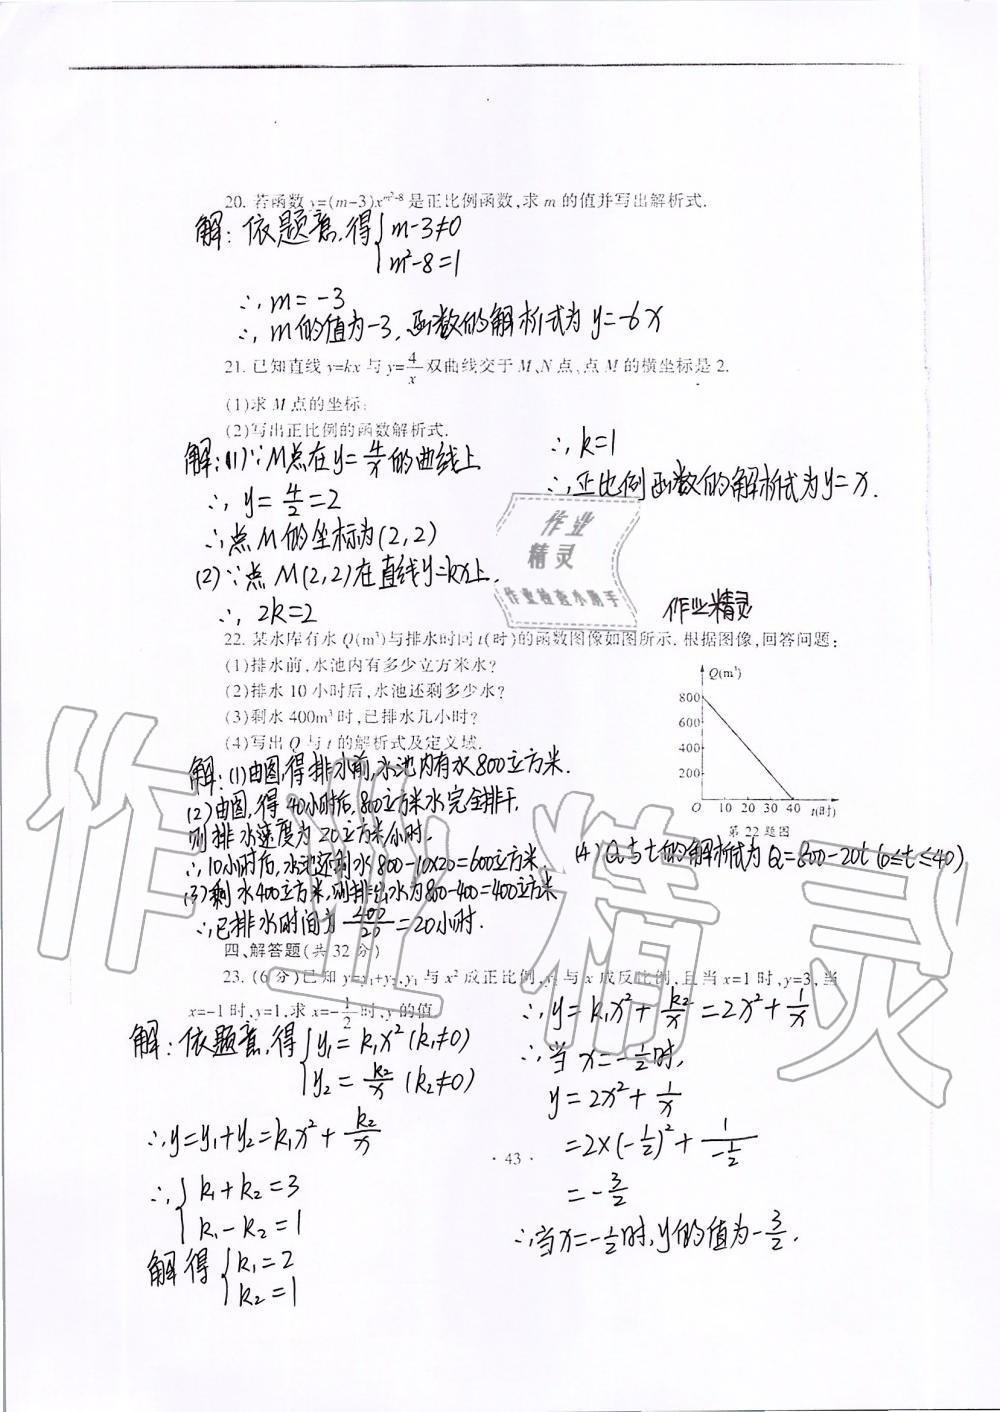 20. 若函数 y=(m-3)x^{m²-8} 是正比例函数,求 m 的值并写出解析式.
解: 依题意,得 { m-3≠0
m²-8=1
∴ m=-3
∴ m的值为-3, 函数的解析式为 y=-6x
21. 已知直线 y=kx 与 y=4/x 双曲线交于 M、N 点,点 M 的横坐标是 2.
(1)求 M 点的坐标;
(2)写出正比例的函数解析式.
解:(1)∵M点在y=4/x的曲线上
∴ y=4/2=2
∴点M的坐标为(2,2)
(2)∵点M(2,2)在直线y=kx上.
∴ 2k=2
∴ k=1
∴,正比例函数的解析式为y=x.
作业
精灵
作业检查小助手
作业精灵
22. 某水库有水 Q(m³)与排水时间 t(时)的函数图像如图所示. 根据图像,回答问题:
(1)排水前,水池内有多少立方米水?
(2)排水 10 小时后,水池还剩多少水?
(3)剩水 400m³ 时,已排水几小时?
(4)写出 Q 与 t 的解析式及定义域.
Q(m³)
800
600
400
200
O 10 20 30 40 t(时)
第 22 题图
解:(1)由图,得排水前,水池内有水800立方米.
(2)由图,得40小时后,800立方米水完全排干,
则排水速度为20立方米/小时.
∴10小时后,水池还剩水800-10×20=600立方米.
(3)剩水400立方米,则排出水为800-400=400立方米
∴,已排水时间为 400/20=20小时.
(4) Q与t的解析式为Q=800-20t(0≤t≤40)
四、解答题(共 32 分)
23. (6 分)已知 y=y₁+y₂,y₁与 x² 成正比例,y₂与 x 成反比例,且当 x=1 时,y=3,当
x=-1 时,y=1,求 x=-1/2 时,y 的值.
解: 依题意,得 { y₁=k₁x²(k₁≠0)
y₂=k₂/x(k₂≠0)
∴y=y₁+y₂=k₁x²+k₂/x
∴ { k₁+k₂=3
k₁-k₂=1
解得 { k₁=2
k₂=1
∴ y=k₁x²+k₂/x=2x²+1/x
∴当 x=-1/2时,
y=2x²+1/x
=2×(-1/2)²+1/(-1/2)
=-3/2
∴,当x=-1/2时,y的值为-3/2.
· 43 ·
作业精灵